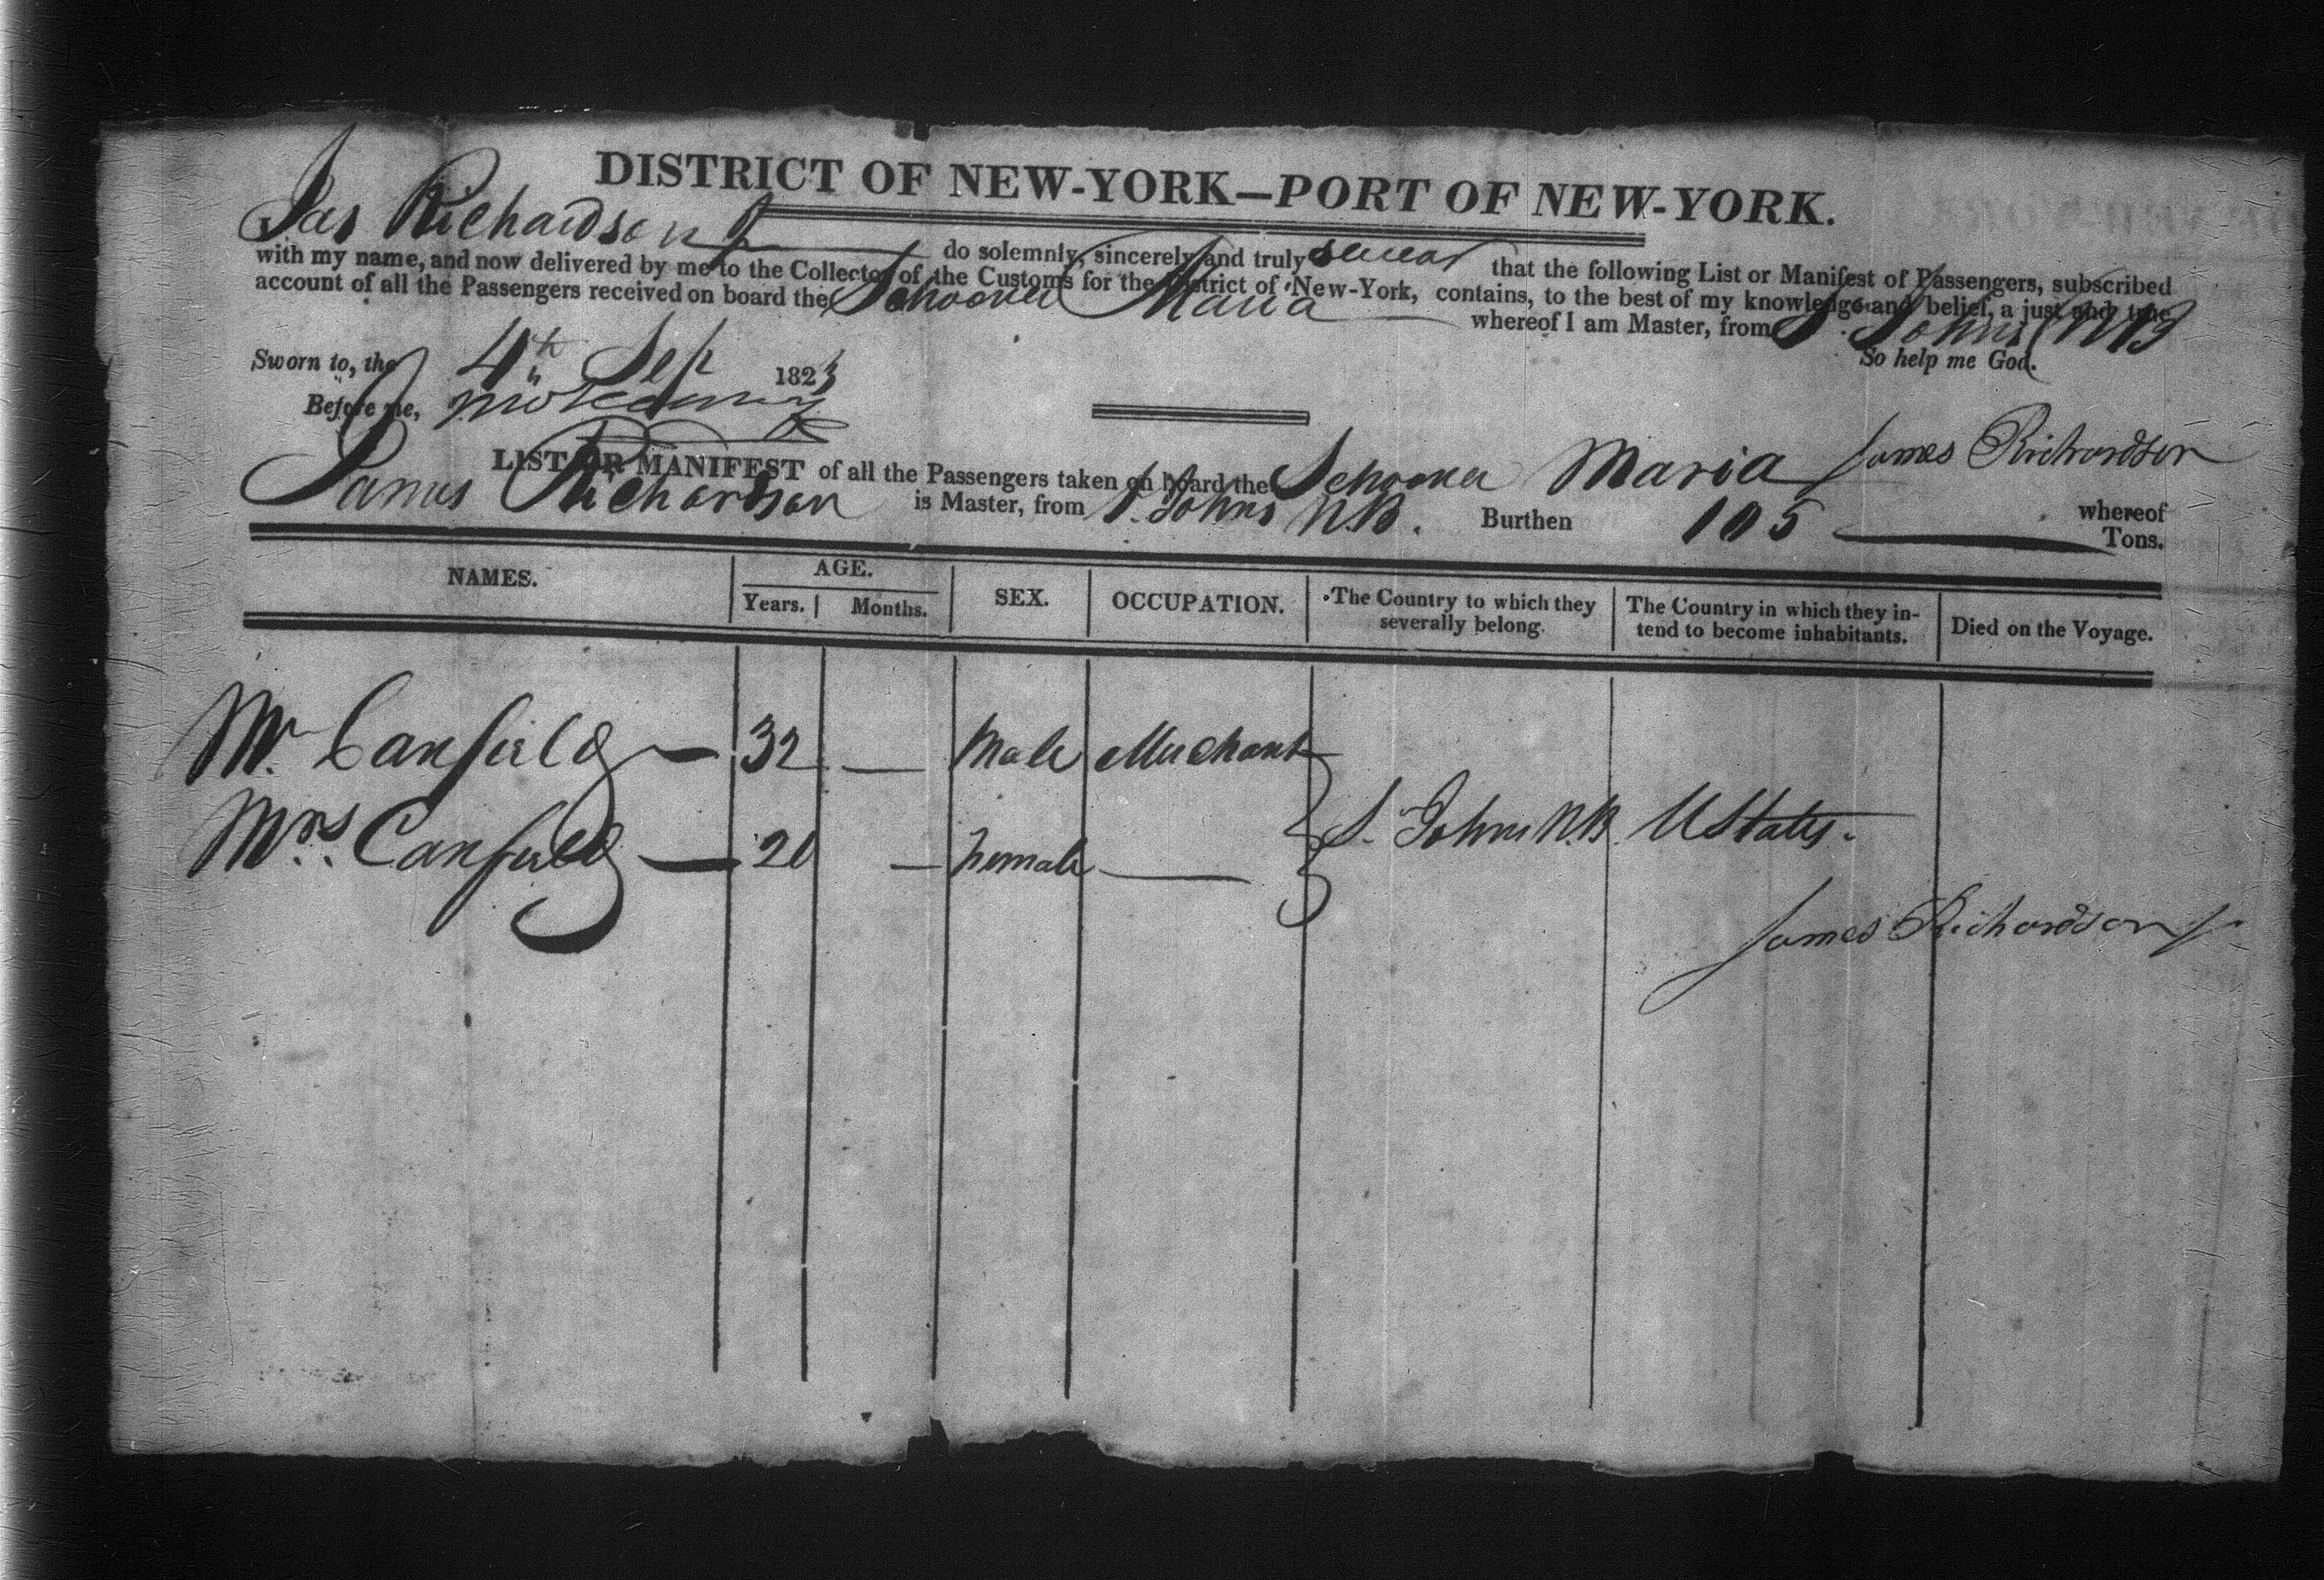 DISTRICT OF NEW-YORK—PORT OF NEW-YORK.
Jas Richardson do solemnly, sincerely and truly swear that the following List or Manifest of Passengers, subscribed
with my name, and now delivered by me to the Collector of the Customs for the District of New-York, contains, to the best of my knowledge and belief, a just and true
account of all the Passengers received on board the Schooner Maria whereof I am Master, from S. Johns NB
So help me God.
Sworn to, the 4th Sep 1823
Before me,
James Richardson
LIST OR MANIFEST of all the Passengers taken on board the Schooner Maria whereof
James Richardson is Master, from S. Johns N.B. Burthen 105 Tons.
NAMES. AGE. Years. Months. SEX. OCCUPATION. The Country to which they severally belong. The Country in which they intend to become inhabitants. Died on the Voyage.
Mr. Canfield — 32 — Male Merchant
S. Johns N.B. UStates.
Mrs. Canfield — 20 — Female —
James Richardson Jr